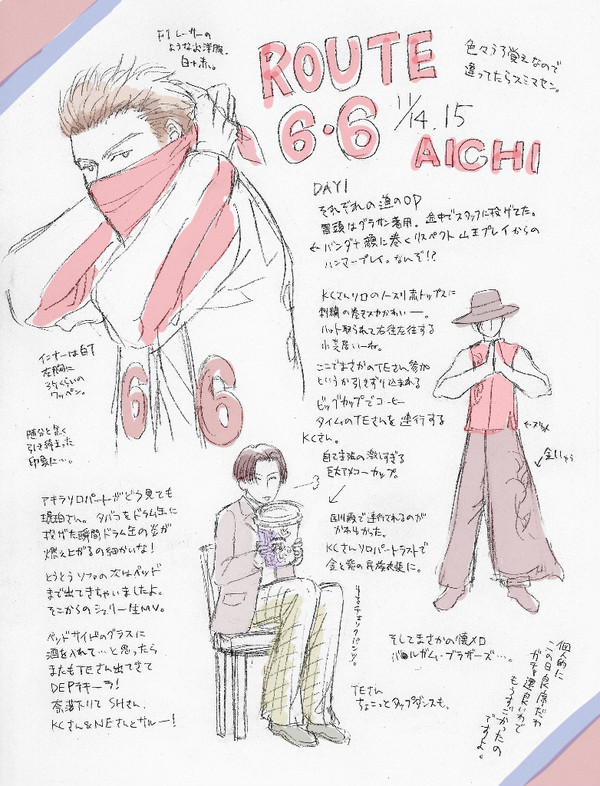 F1レーサーの
ような お洋服。
白+赤。
ROUTE
6・6
11/14.15
AICHI
色々うろ覚えなので
違ってたらスミマセン。
DAY1
それぞれの道のOP
冒頭はグラサン着用。途中でスタッフに投げてた。
←バンダナ顔に巻くリスペクト山王プレイからの
ハンマープレイ。なんぞ!?
インナーは白T
左胸に
ワッペン。
随分と黒く
引き締まった
印象に…。
6 6
KCさんソロのノースリ赤トップスに
刺繍の巻きスカかわいー。
ハット取られて右往左往する
小芝居いーね。
ここでまさかのTEさん参加
というか引きずり込まれる
ビッグカップでコーヒー
タイムのTEさんを連行する
KCさん。
自己主張の激しすぎる
巨大なコーヒーカップ。
で連行されてるのが
かわいかった。
KCさんソロパートラストで
金と紫の民族衣装に。
アキラソロパートがどう見ても
琥珀さん。タバコをドラム缶に
投げた瞬間ドラム缶の炎が
燃え上がるの細かいな!
とうとうソファの次はベッド
まで出てきちゃいましたよ。
そこからのシェリー生MV。
ベッドサイドのグラスに
酒を入れて…と思ったら
またもTEさん出てきて
DEPテキーラ!
奈落下りてSHさん、
KCさん&NEさんとサルー!
チェックパンツ。
そしてまさかの懐メロ
バ●ルガム・ブラザーズ…。
TEさん
ちょこっとタップダンスも。
個人的に
この日良席だわ
ガチャ運良いわで
もうすごかったの
ですよ。